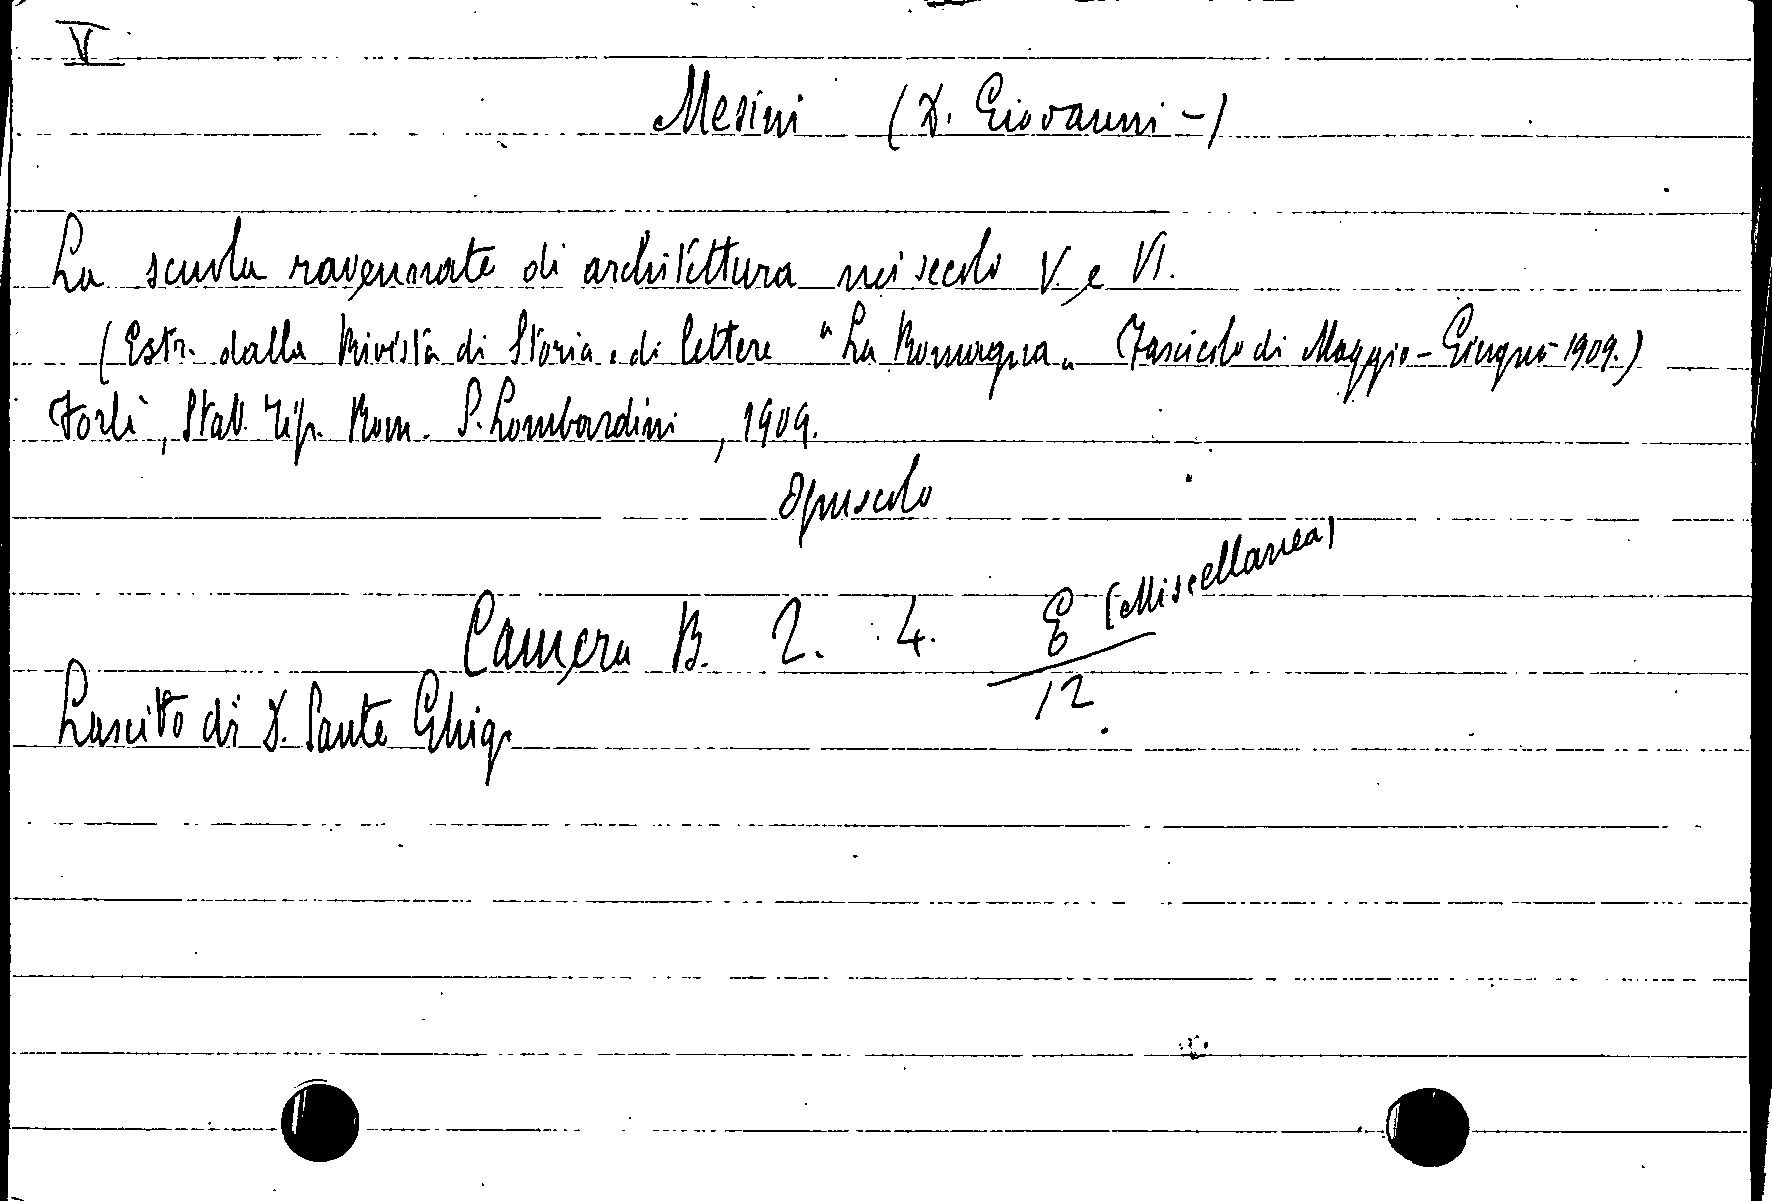 V
Mesini (D. Giovanni -)
La scuola ravennate di architettura nei secolo V. e VI.
(Estr. dalla Rivista di Storia e di lettere "La Romagna„ Fascicolo di Maggio-Giugno-1909.)
Forlì, Stab. Tip. Rom. P. Lombardini, 1909.
Opuscolo
Camera B. 2. 4. E (Miscellanea)
12.
Lascito di D. Sante Ghig.